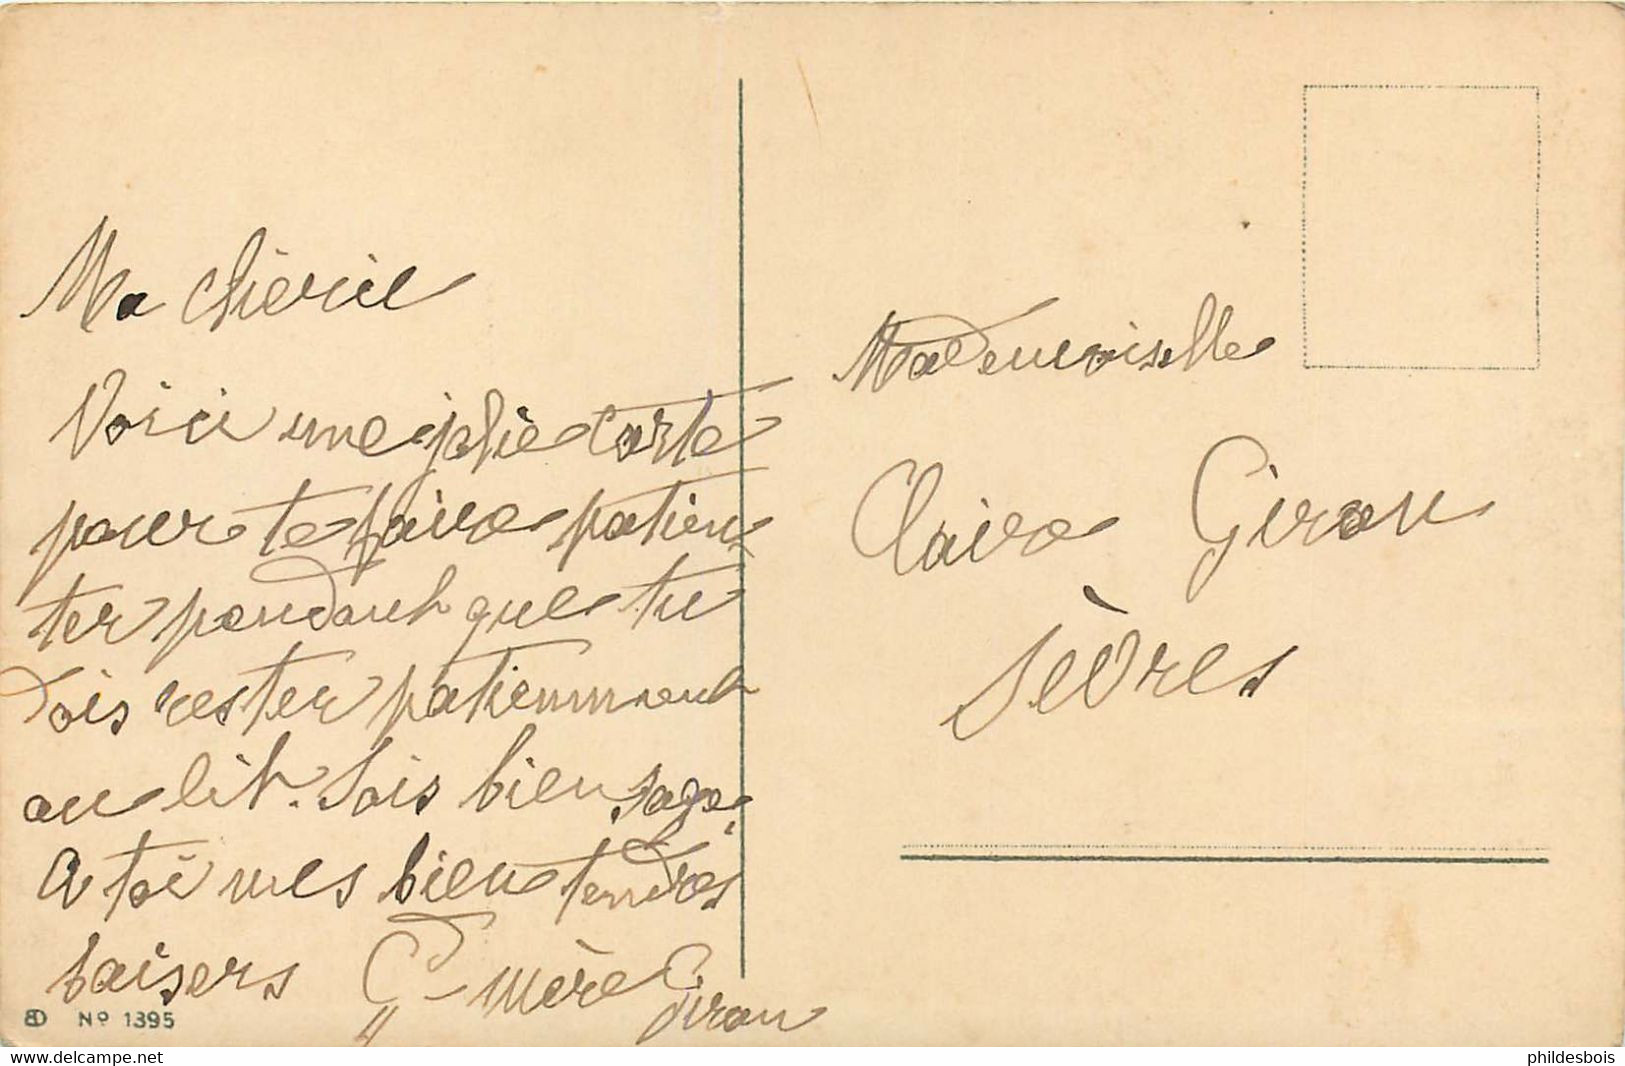 Ma chérie
Voici une jolie carte
pour te faire patien
ter pendant que tu
dois rester patiemment
au lit. Sois bien sage.
A toi mes bien tendres
baisers Gd-mère
Giron
BD Nº 1395
Mademoiselle
Claire Giron
Sèvres
www.delcampe.net
phildesbois